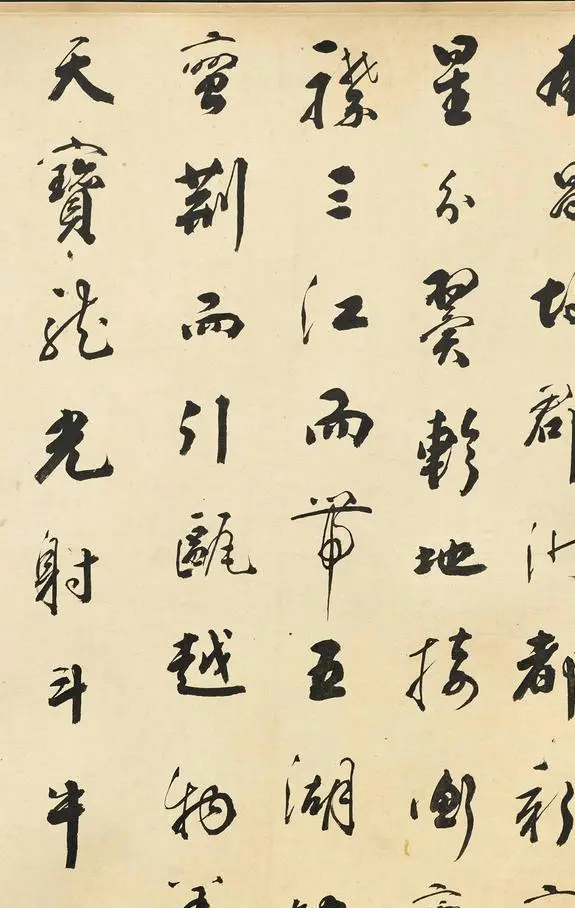 故郡洪都新
星分翼軫地接衡
襟三江而帶五湖
蠻荊而引甌越物
天寶龍光射斗牛